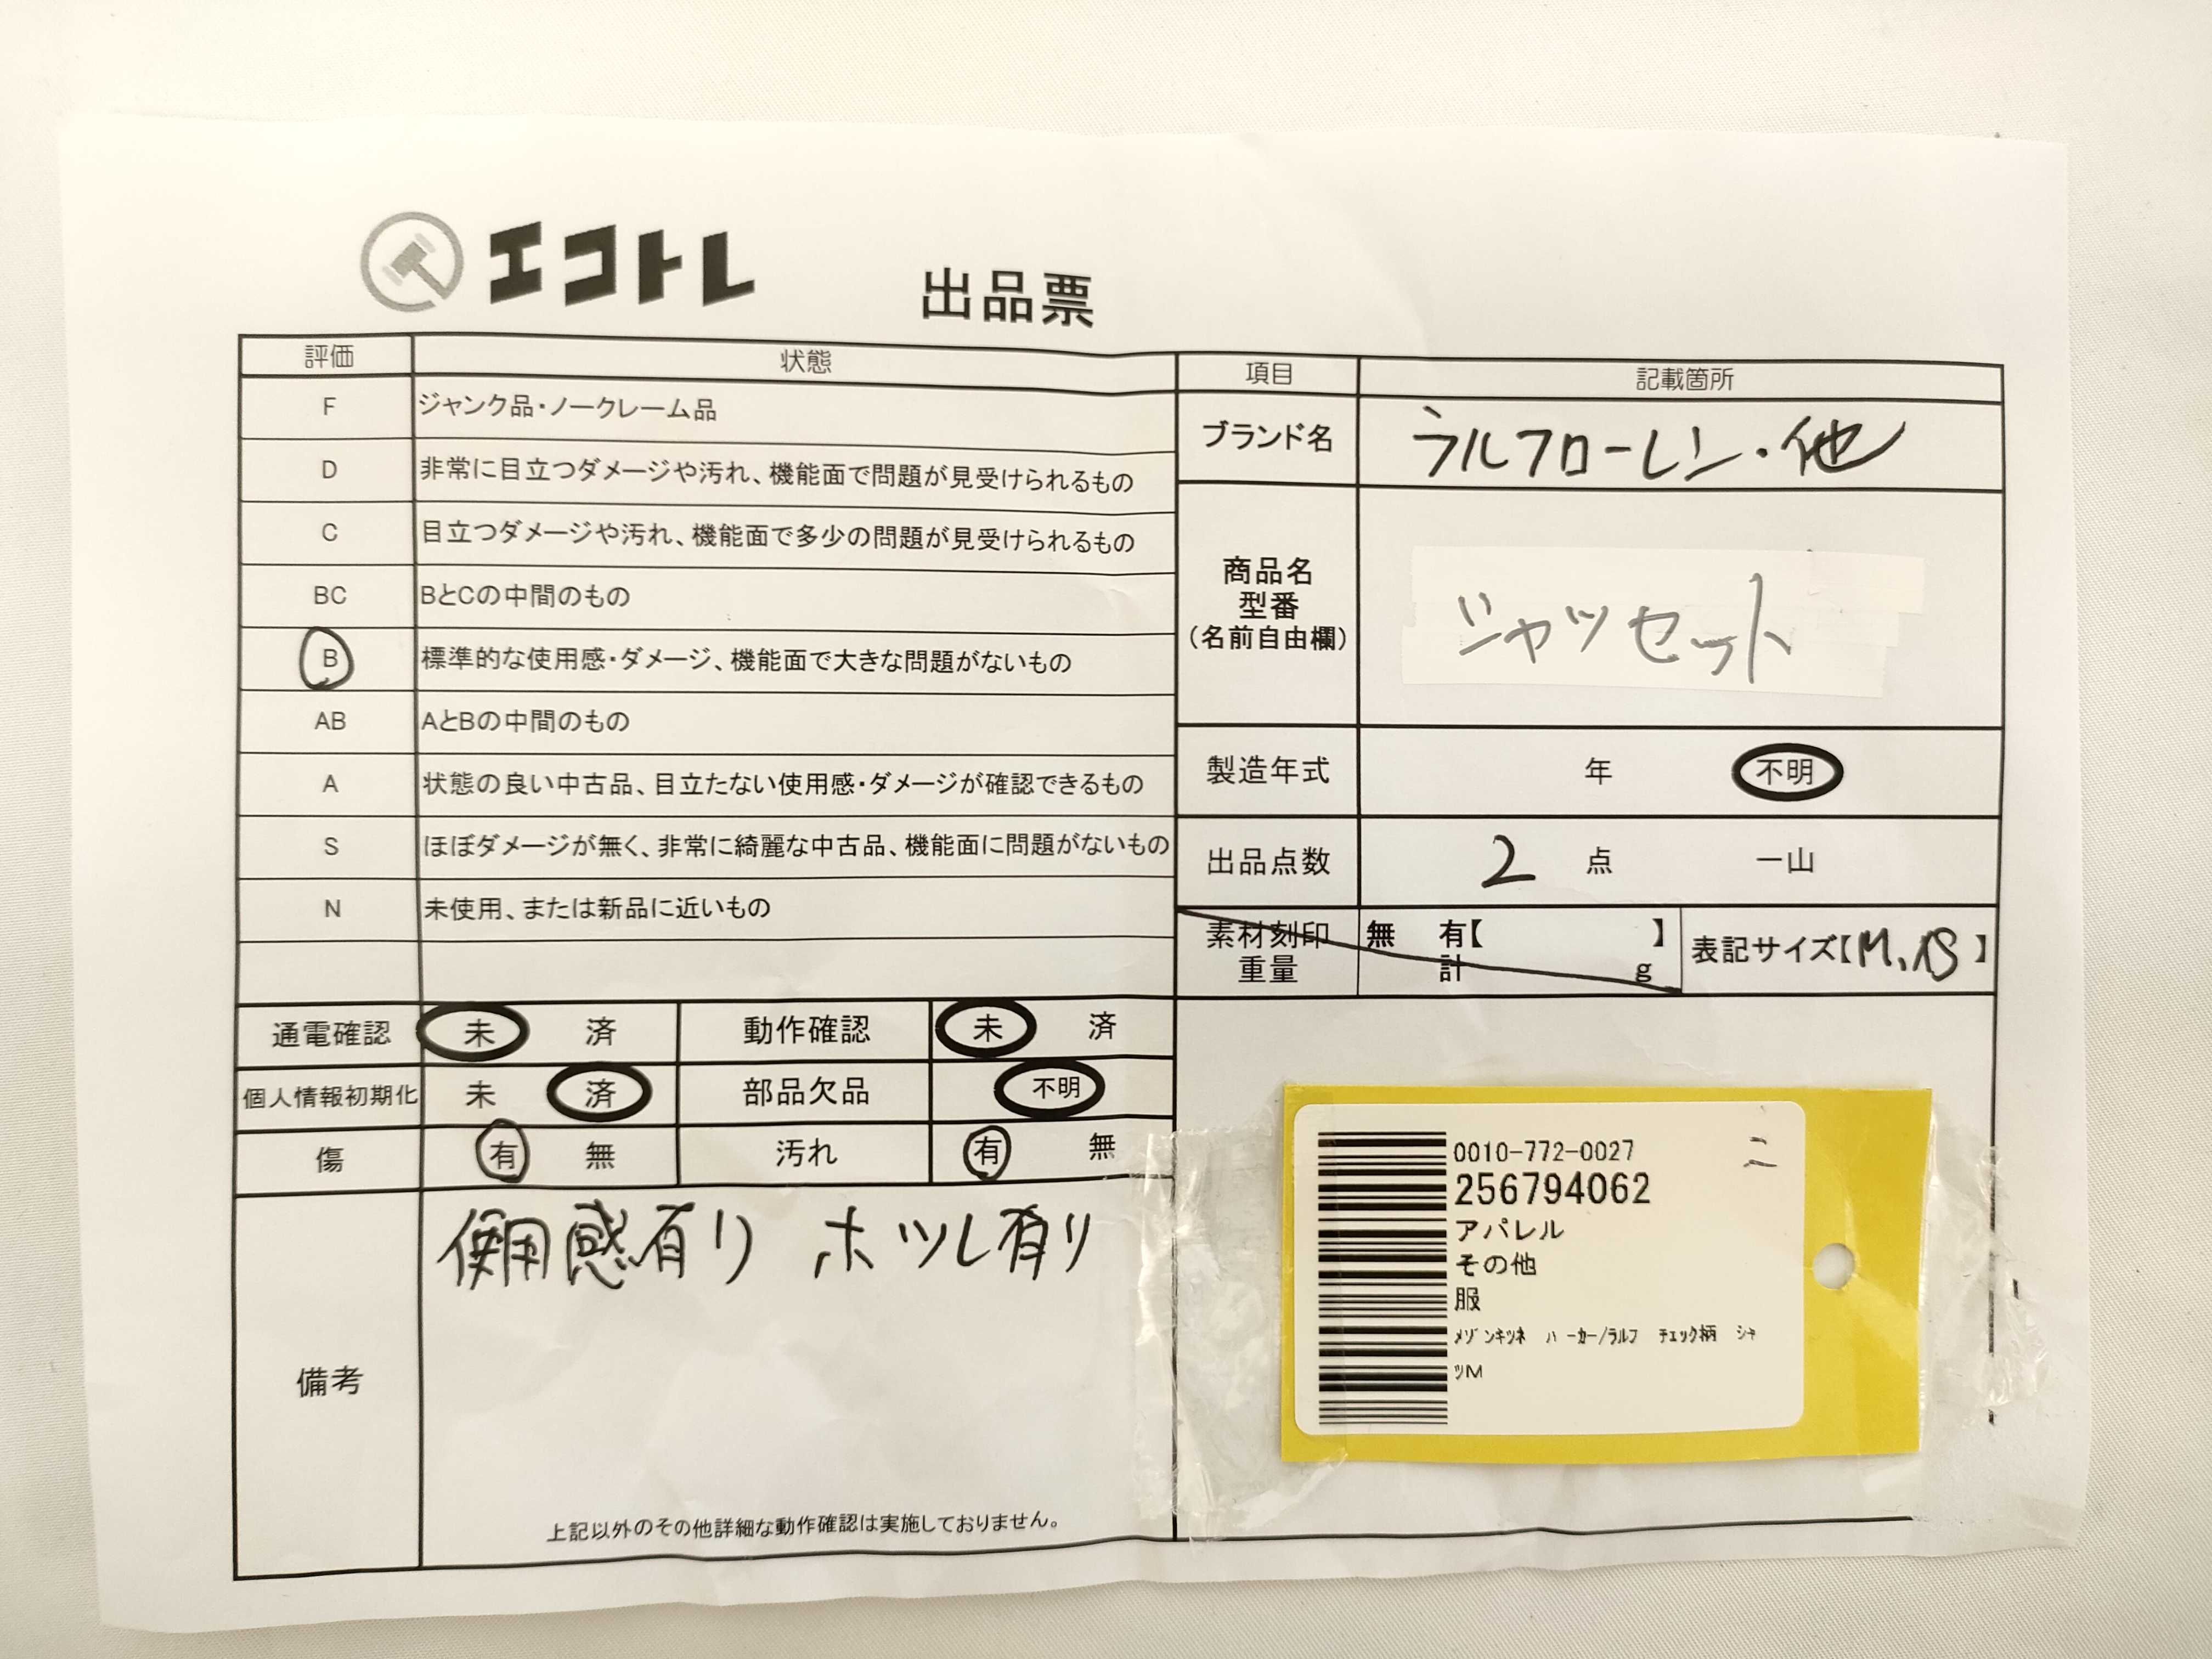 エコトレ 出品票
評価 状態
F ジャンク品・ノークレーム品
D 非常に目立つダメージや汚れ、機能面で問題が見受けられるもの
C 目立つダメージや汚れ、機能面で多少の問題が見受けられるもの
BC BとCの中間のもの
B 標準的な使用感・ダメージ、機能面で大きな問題がないもの
AB AとBの中間のもの
A 状態の良い中古品、目立たない使用感・ダメージが確認できるもの
S ほぼダメージが無く、非常に綺麗な中古品、機能面に問題がないもの
N 未使用、または新品に近いもの
通電確認 未 済 動作確認 未 済
個人情報初期化 未 済 部品欠品 不明
傷 有 無 汚れ 有 無
備考
使用感有り ホツレ有り
上記以外のその他詳細な動作確認は実施しておりません。
項目 記載箇所
ブランド名 ラルフローレン・他
商品名
型番
(名前自由欄)
シャツセット
製造年式 年 不明
出品点数 2 点 一山
素材刻印 無 有【 】
重量 計 g
表記サイズ【M、 】
0010-772-0027
256794062
アパレル
その他
服
メゾンキツネ パーカー/ラルフ チェック柄 シャ
ツM